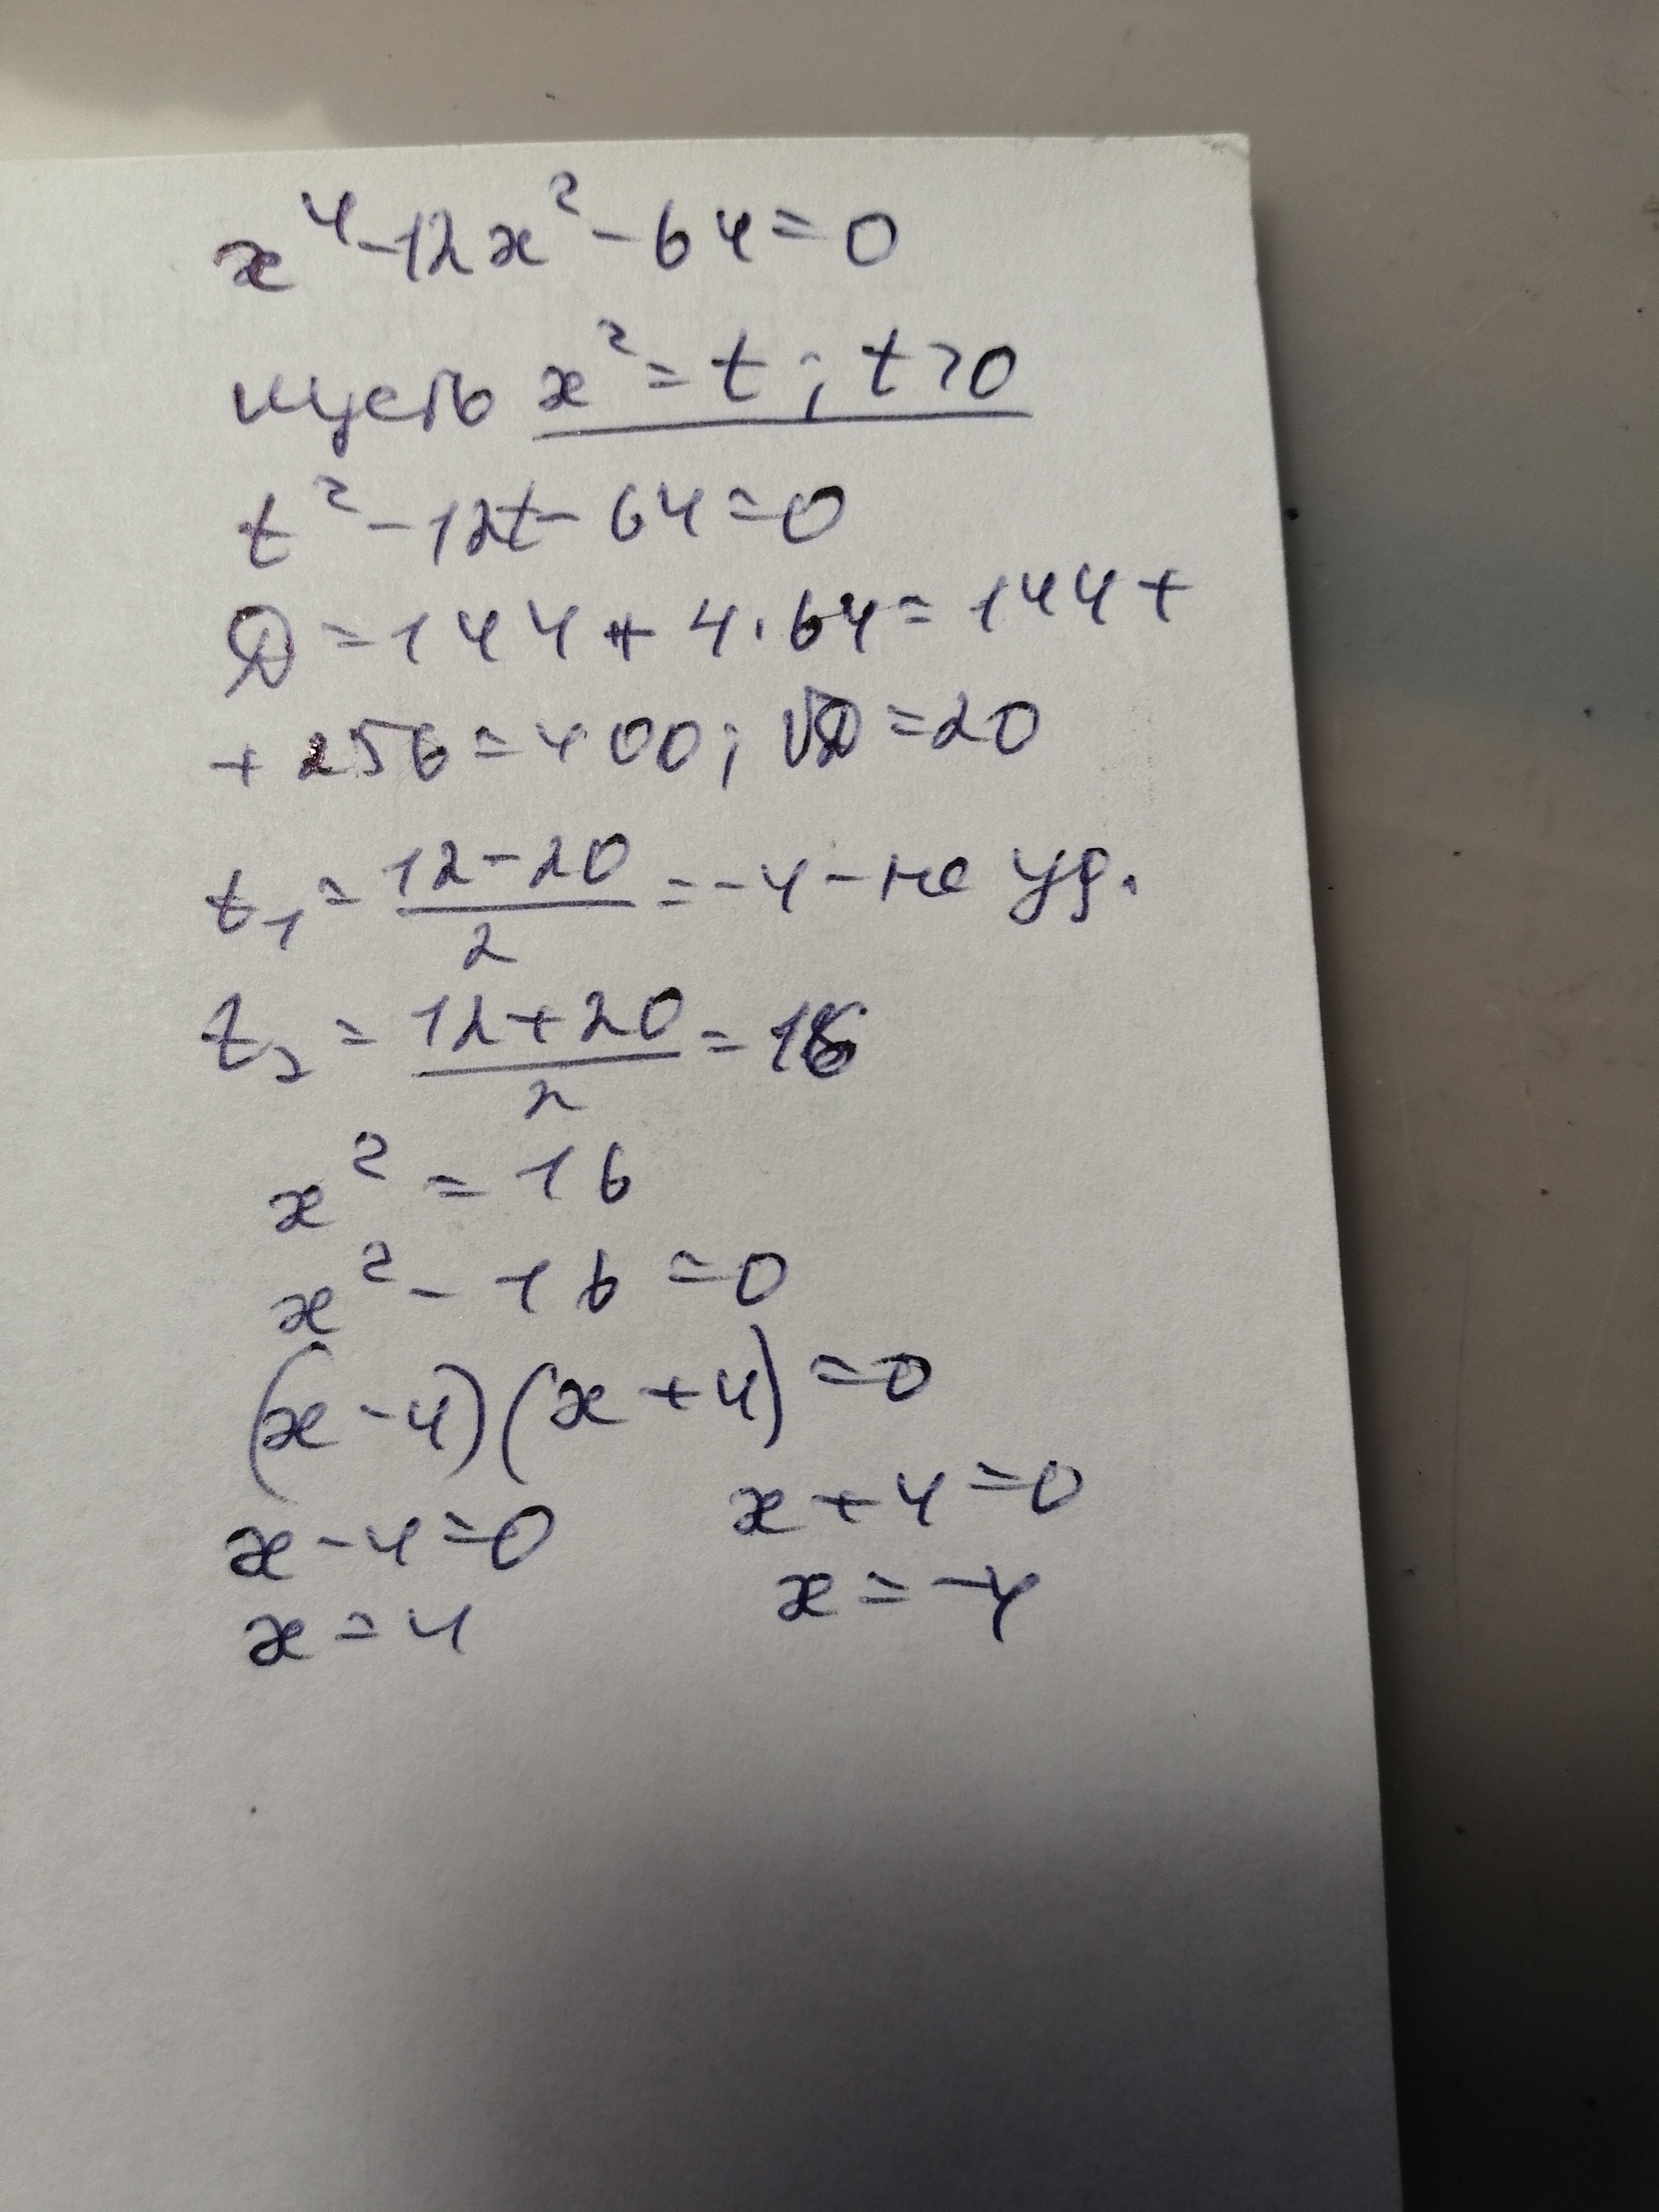 x⁴-12x²-64=0
пусть x²=t; t>0
t²-12t-64=0
D=144+4·64=144+
+256=400; √D=20
t₁=(12-20)/2=-4-не уд.
t₂=(12+20)/2=16
x²=16
x²-16=0
(x-4)(x+4)=0
x-4=0 x+4=0
x=4 x=-4